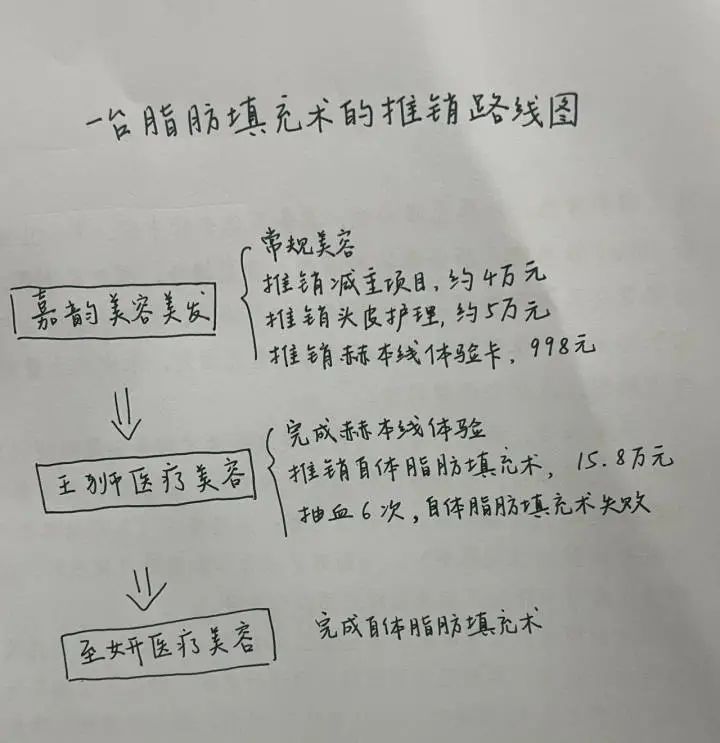 一台脂肪填充术的推销路线图
嘉韵美容美发
常规美容
推销减重项目，约4万元
推销头皮护理，约5万元
推销赫本线体验卡，998元
王狮医疗美容
完成赫本线体验
推销自体脂肪填充术，15.8万元
抽血6次，自体脂肪填充术失败
至妍医疗美容
完成自体脂肪填充术